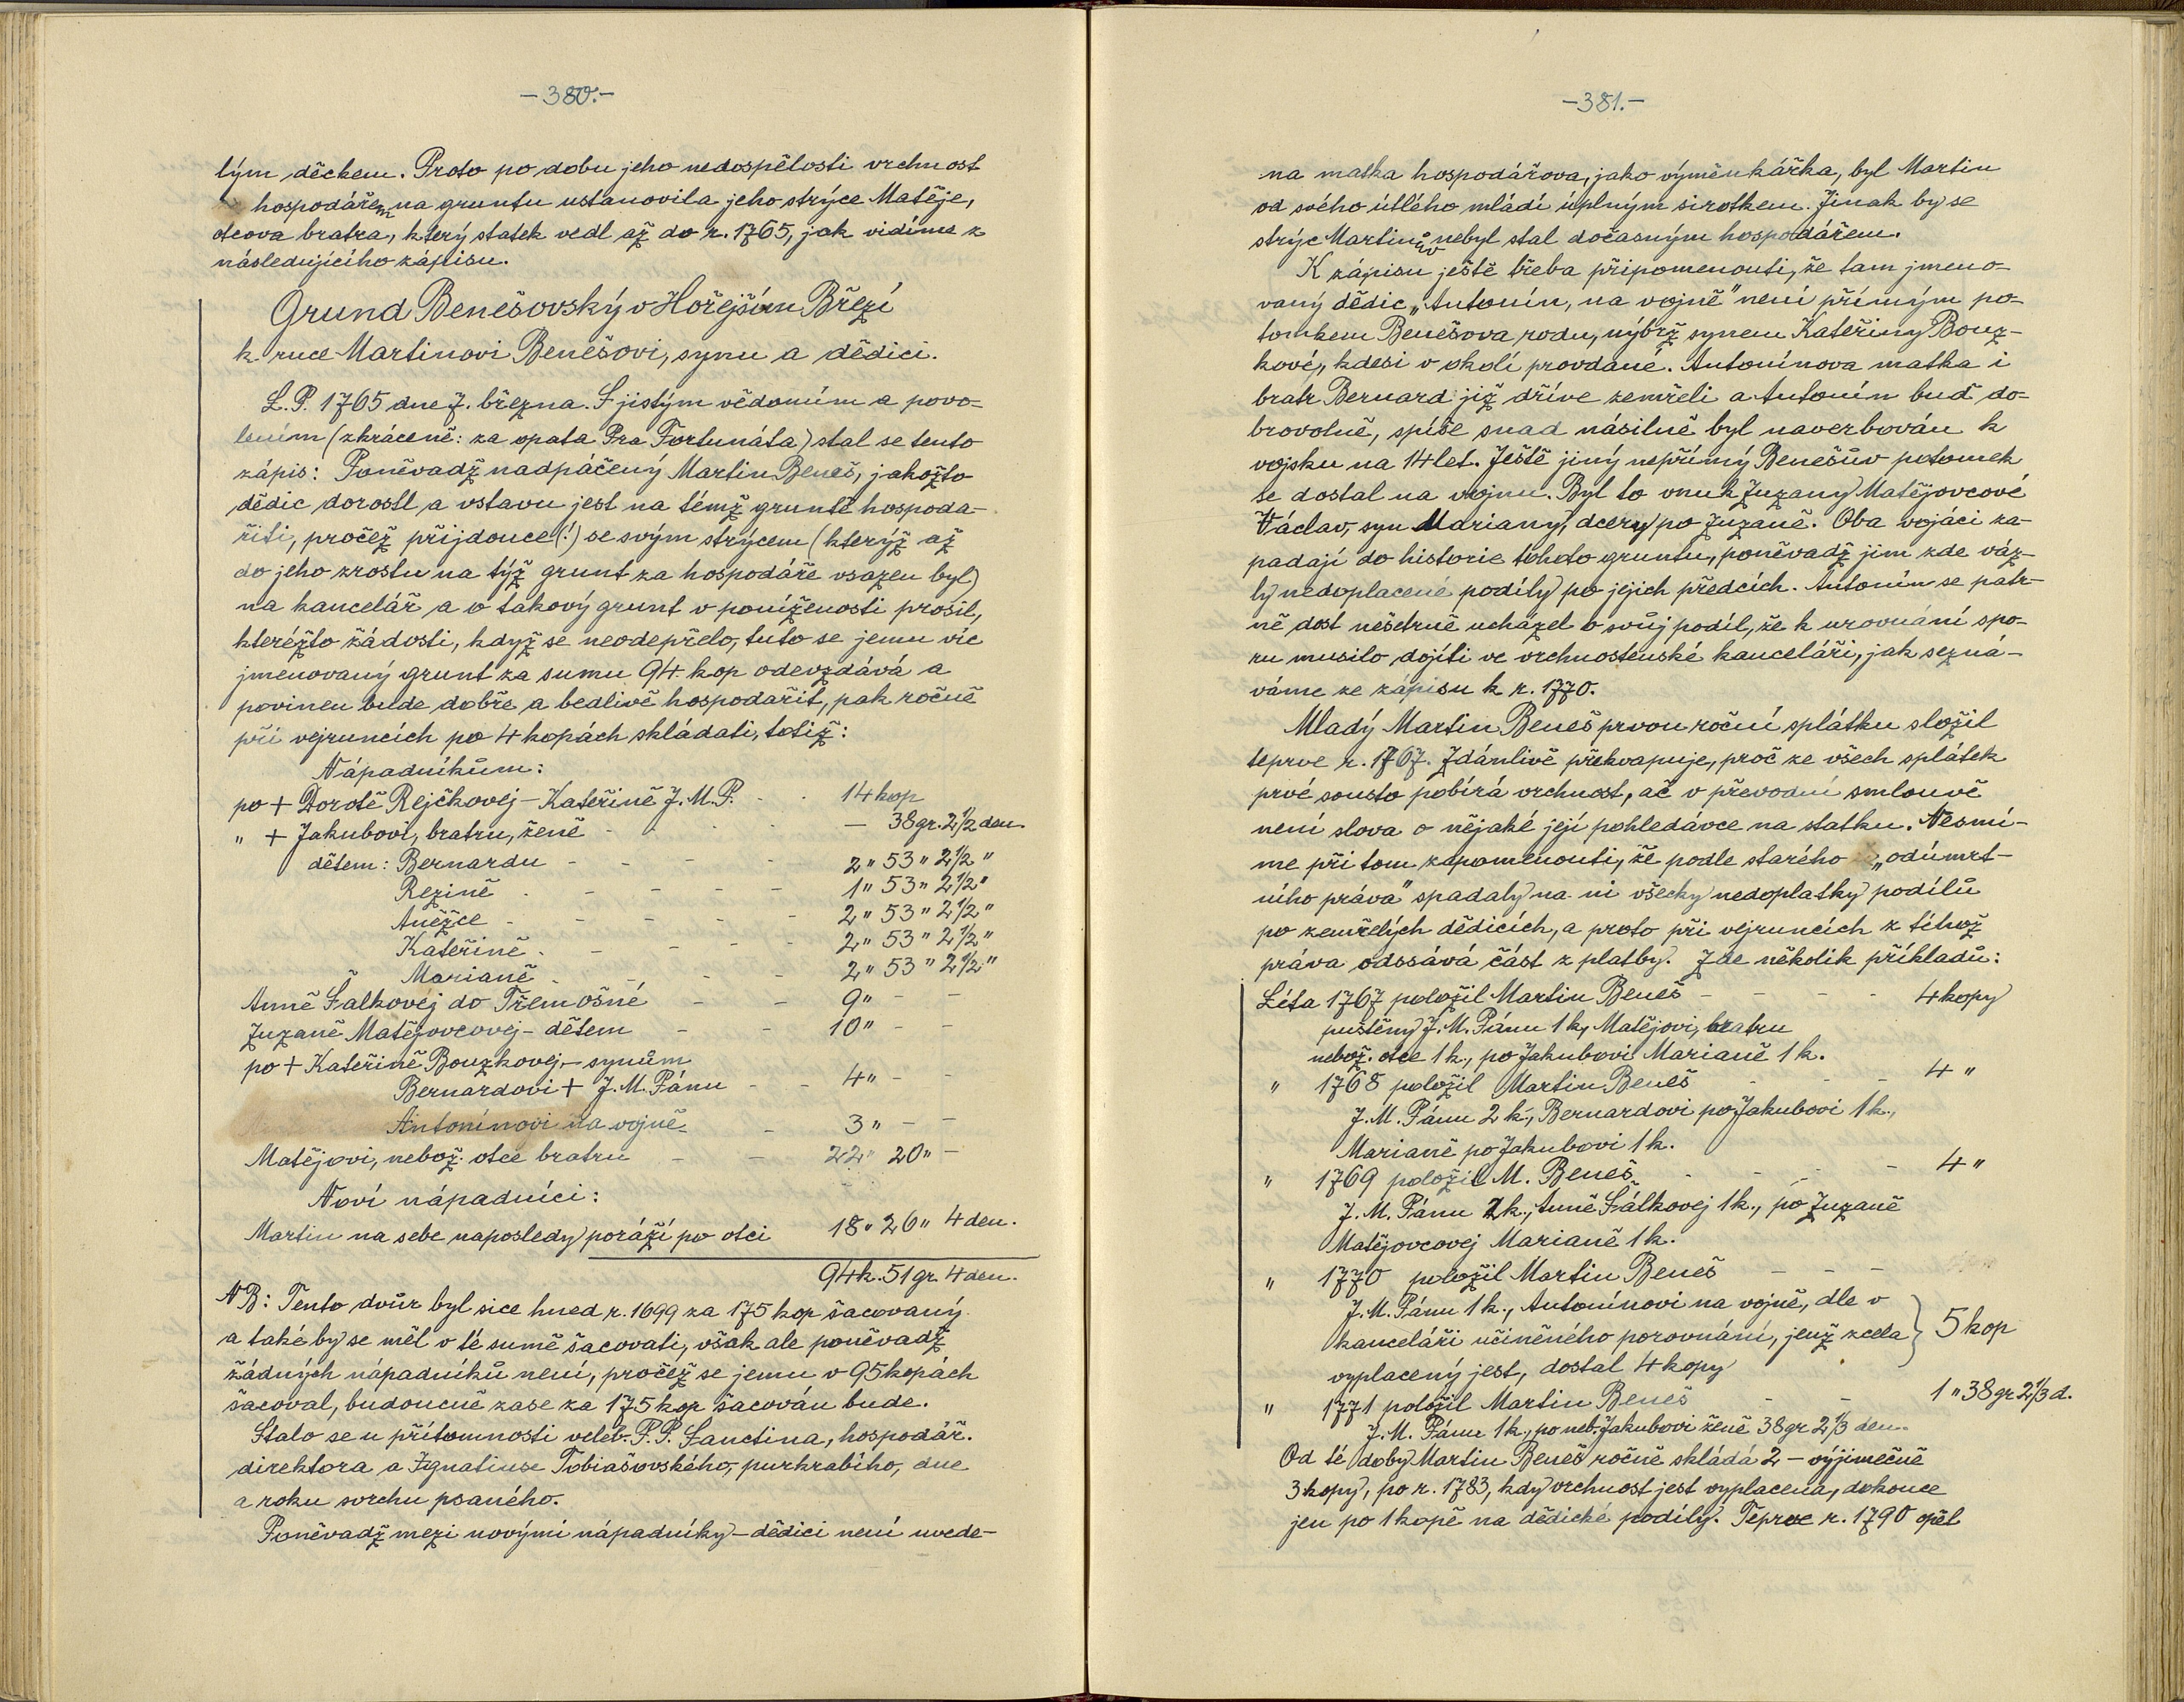 -380.-
lým děckem. Proto po dobu jeho nedospělosti vrchnost
hospodářem na gruntu ustanovila jeho strýce Matěje,
otcova bratra, který statek vedl až do r. 1765, jak vidíme z
následujícího zápisu.
Grund Benešovský v Hořejším Březí
k ruce Martinovi Benešovi, synu a dědici.
L.P. 1765 dne 7. března. S jistým vědomím a povo-
lením (zkráceně: za opata Pra Fortunáta) stal se tento
zápis: Poněvadž nadpáčený Martin Beneš, jakožto
dědic dorostl a vstavu jest na témž gruntě hospoda-
řiti, pročež přijdouce (!) se svým strýcem (kterýž až
do jeho zrostu na týž grunt za hospodáře vsazen byl)
na kancelář a o takový grunt v poníženosti prosil,
kteréžto žádosti, když se neodepřelo, tuto se jemu víc
jmenovaný grunt za sumu 94 kop odevzdává a
povinen bude dobře a bedlivě hospodařit, pak ročně
při vejruncích po 4 kopách skládati, totiž:
Nápadníkům:
po + Dorotě Rejčkovej - Kateřině J.M.P. - - 14 kop
" + Jakubovi, bratru, ženě - - - - — 38 gr. 2 1/2 den.
dětem: Bernardu - - - - 2 " 53 " 2 1/2 "
Rezině - - - - - 1 " 53 " 2 1/2 "
Anežce - - - - - 2 " 53 " 2 1/2 "
Kateřině - - - - - 2 " 53 " 2 1/2 "
Marianě - - - - 2 " 53 " 2 1/2 "
Anně Šalkovéj do Třemošné - - 9 " - -
Zuzaně Matějovcovej - dětem - - 10 " - -
po + Kateřině Bouzkovej - synům
Bernardovi + J.M. Pánu - - 4 " - -
Antonínovi na vojně - - 3 " - -
Matějovi, nebož. otce bratru - - 22 " 20 " -
Noví nápadníci:
Martin na sebe naposledy poráží po otci 18 " 26 " 4 den.
94 k. 51 gr. 4 den.
NB: Tento dvůr byl sice hned r. 1699 za 175 kop šacovaný
a také by se měl v té sumě šacovati, však ale poněvadž
žádných nápadníků není, pročež se jemu v 95 kopách
šacoval, budoucně zase za 175 kop šacován bude.
Stalo se u přítomnosti veleb. P.P. Sanctina, hospodář.
direktora a Ignatiuse Tobiašovského, purkrabího, dne
a roku svrchu psaného.
Poněvadž mezi novými nápadníky - dědici není uvede-
-381.-
na matka hospodářova, jako výměnkářka, byl Martin
od svého útlého mládí úplným sirotkem. Jinak by se
strýc Martinův nebyl stal dočasným hospodářem.
K zápisu ještě třeba připomenouti, že tam jmeno-
vaný dědic „Antonín, na vojně" není přímým po-
tomkem Benešova rodu, nýbrž synem Kateřiny Bouz-
kové, kdesi v okolí provdané. Antonínova matka i
bratr Bernard již dříve zemřeli a Antonín buď do-
brovolně, spíše snad násilně byl naverbován k
vojsku na 14 let. Ještě jiný nepřímý Benešův potomek
se dostal na vojnu. Byl to vnuk Zuzany Matějovcové
Václav, syn Mariany, dcery po Zuzaně. Oba vojáci za-
padají do historie tohoto gruntu, poněvadž jim zde váz-
ly nedoplacené podíly po jejich předcích. Antonín se patr-
ně dost nešetrně ucházel o svůj podíl, že k urovnání spo-
ru musilo dojíti ve vrchnostenské kanceláři, jak sezná-
váme ze zápisu k r. 1770.
Mladý Martin Beneš prvou roční splátku složil
teprve r. 1767. Zdánlivě překvapuje, proč ze všech splátek
prvé sousto pobírá vrchnost, ač v převodní smlouvě
není slova o nějaké její pohledávce na statku. Nesmí-
me při tom zapomenouti, že podle starého „odúmrt-
ního práva" spadaly na ni všecky nedoplatky podílů
po zemřelých dědicích, a proto při vejruncích z téhož
práva odssává část z platby. Zde několik příkladů:
Léta 1767 položil Martin Beneš - - - - 4 kopy
puštěny J.M. Pánu 1 k, Matějovi, bratru
nebož. otce 1 k., po Jakubovi Marianě 1 k.
" 1768 položil Martin Beneš - - - 4 "
J.M. Pánu 2 k., Bernardovi po Jakubovi 1 k.,
Marianě po Jakubovi 1 k.
" 1769 položil M. Beneš - - - - 4 "
J.M. Pánu 2 k., Anně Šálkovej 1 k., po Zuzaně
Matějovcovej Marianě 1 k.
" 1770 položil Martin Beneš - - -
J.M. Pánu 1 k., Antonínovi na vojně, dle v
kanceláři učiněného porovnání, jenž zcela } 5 kop
vyplacený jest, dostal 4 kopy
" 1771 položil Martin Beneš - - 1 " 38 gr 2 1/3 d.
J.M. Pánu 1 k., po neb. Jakubovi ženě 38 gr 2 1/3 den.
Od té doby Martin Beneš ročně skládá 2 - výjimečně
3 kopy, po r. 1783, kdy vrchnost jest vyplacena, dokonce
jen po 1 kopě na dědické podíly. Teprve r. 1790 opět